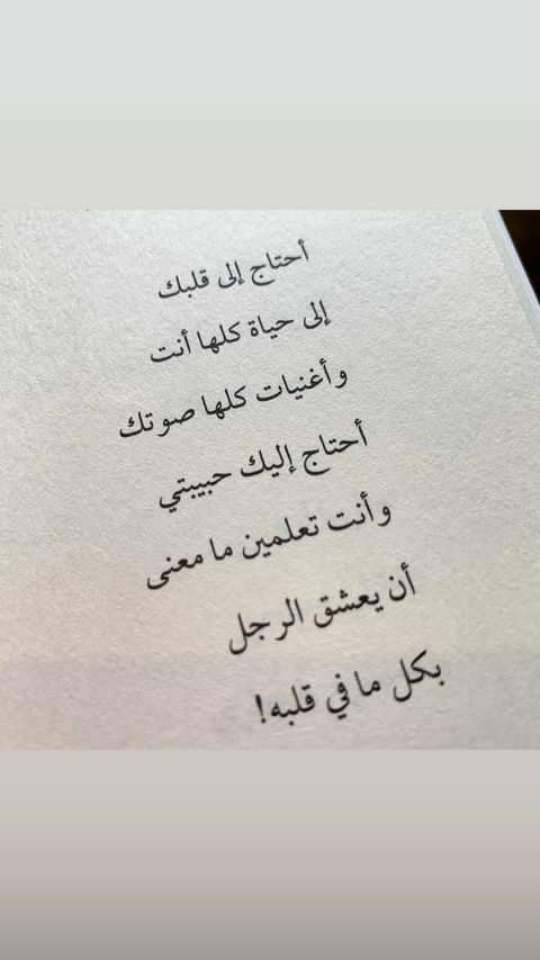 أحتاج إلى قلبك
إلى حياة كلها أنت
وأغنيات كلها صوتك
أحتاج إليك حبيبتي
وأنت تعلمين ما معنى
أن يعشق الرجل
بكل ما في قلبه!